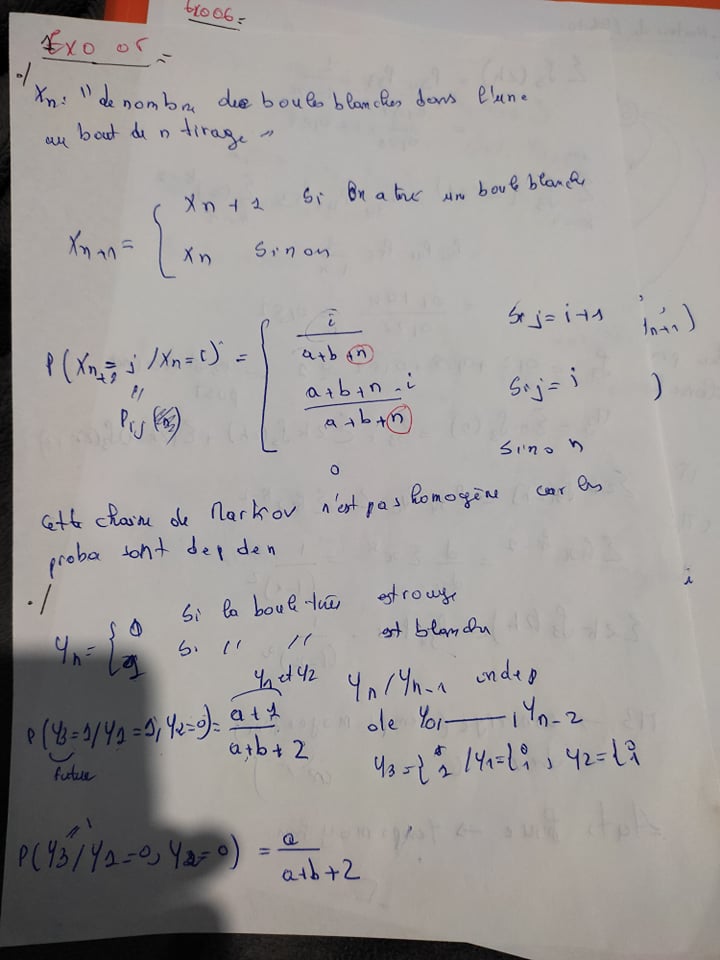 Exo06=
Exo 05=
•/
Xn: "de nombre des boules blanches dans l'urne
au bout de n tirage"
Xn+1 = { Xn + 1 si on a tiré un boule blanche
Xn sinon
P(Xn+1 = j / Xn = i) = { i / a+b+n si j = i+1
Pij(n) a+b+n-i / a+b+n si j = i
0 sinon
cette chaine de Markov n'est pas homogène car les
proba sont dep de n
•/
Yn = { 0 si la boule tirés est rouge
1 si " " est blanche
Yn / Yn-1 indep
de Y0, — , Yn-2
P(Y3=1/Y1=1, Y2=0) = a+1 / a+b+2
future
Y3={ 0 1 / Y1={ 0 1 , Y2={ 0 1
P(Y3=1/Y1=0, Y2=0) = a / a+b+2